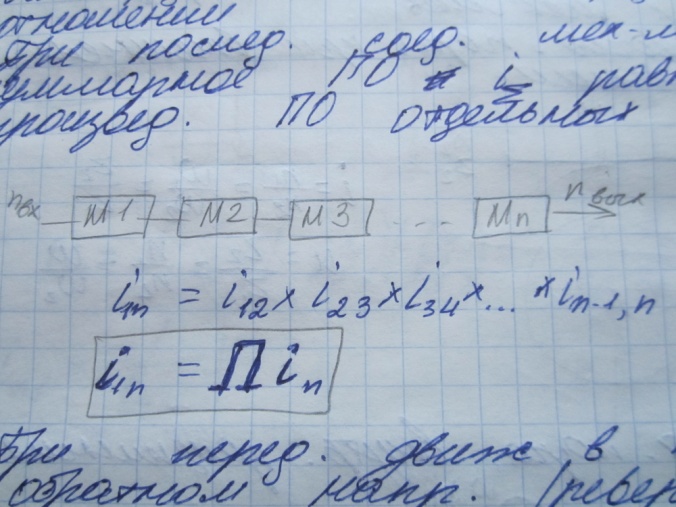 отношении
При послед. соед. мех-м
суммарное ПО i рав
произвед. ПО отдельных
nвх М1 М2 М3 ... Мn nвых
i1n = i12 × i23 × i34 × ... × in-1,n
i1n = П in
При перед. движ в
обратном напр. (ревер